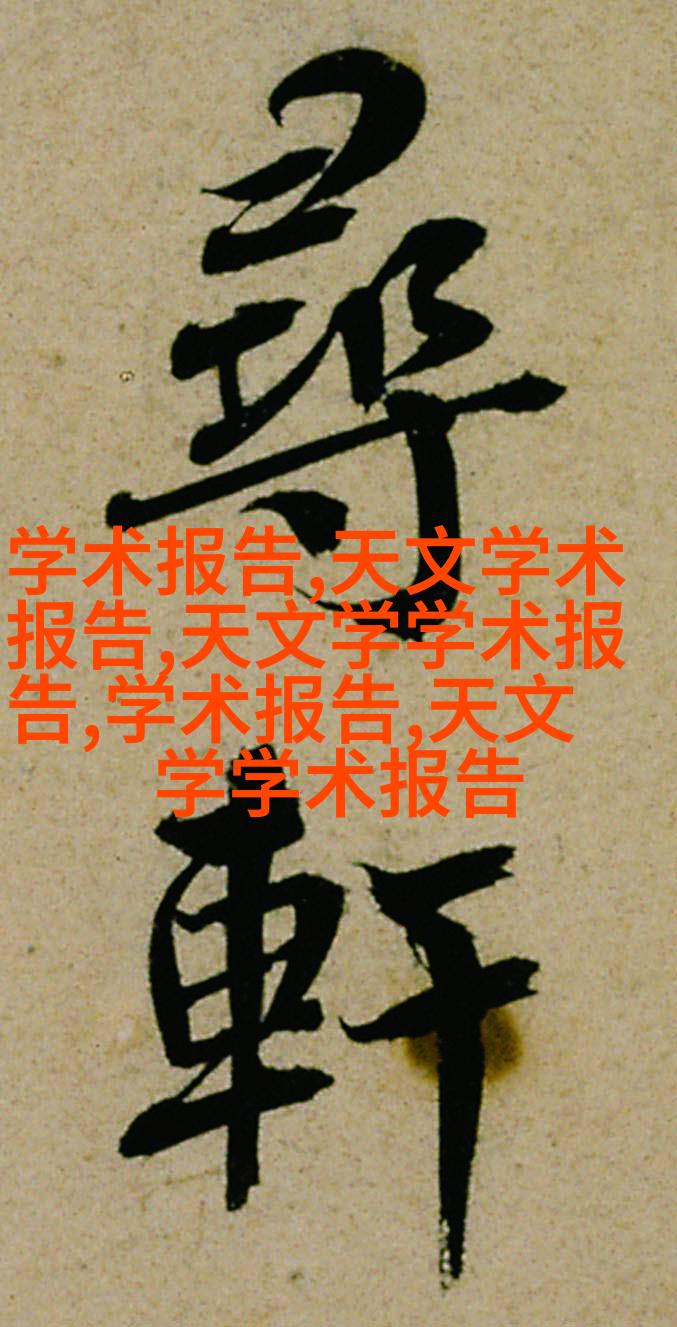 尋
軒
学术报告,天文学术
报告,天文学学术报
告,学术报告,天文
学学术报告